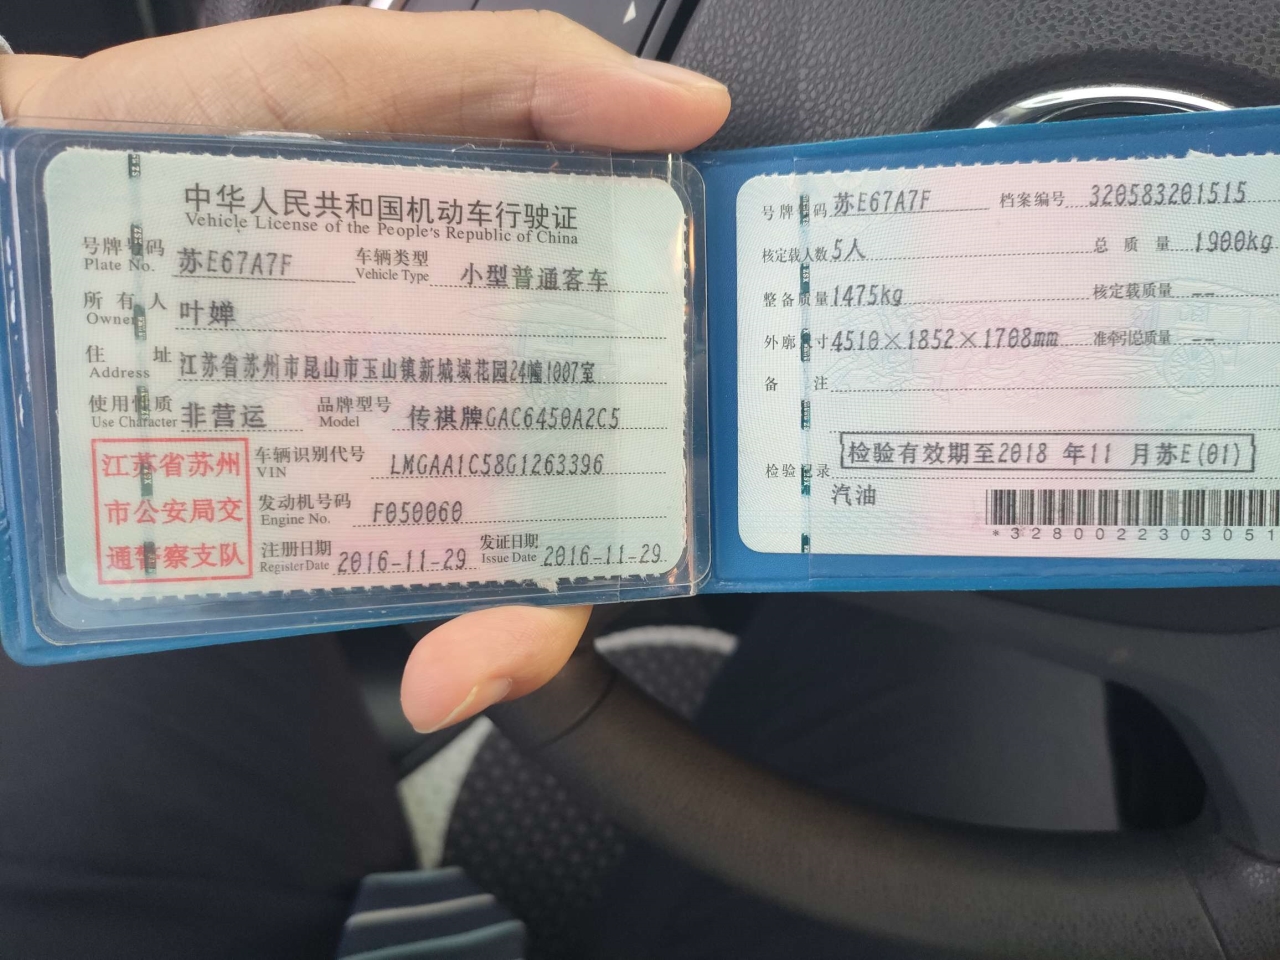 中华人民共和国机动车行驶证
Vehicle License of the People's Republic of China
号牌号码 苏E67A7F 车辆类型 小型普通客车
Plate No. Vehicle Type
所有人 叶婵
Owner
住址 江苏省苏州市昆山市玉山镇新城域花园24幢1007室
Address
使用性质 非营运 品牌型号 传祺牌GAC6450A2C5
Use Character Model
江苏省苏州
市公安局交
通警察支队
车辆识别代号 LMGAA1C58G1263396
VIN
发动机号码 F050060
Engine No.
注册日期 2016-11-29 发证日期 2016-11-29
Register Date Issue Date
号牌号码 苏E67A7F 档案编号 320583201515
核定载人数 5人 总质量 1900kg
整备质量 1475kg 核定载质量 --
外廓尺寸 4510×1852×1708mm 准牵引总质量 --
备注
检验记录 检验有效期至2018 年11 月苏E(01)
汽油
*3280022303051